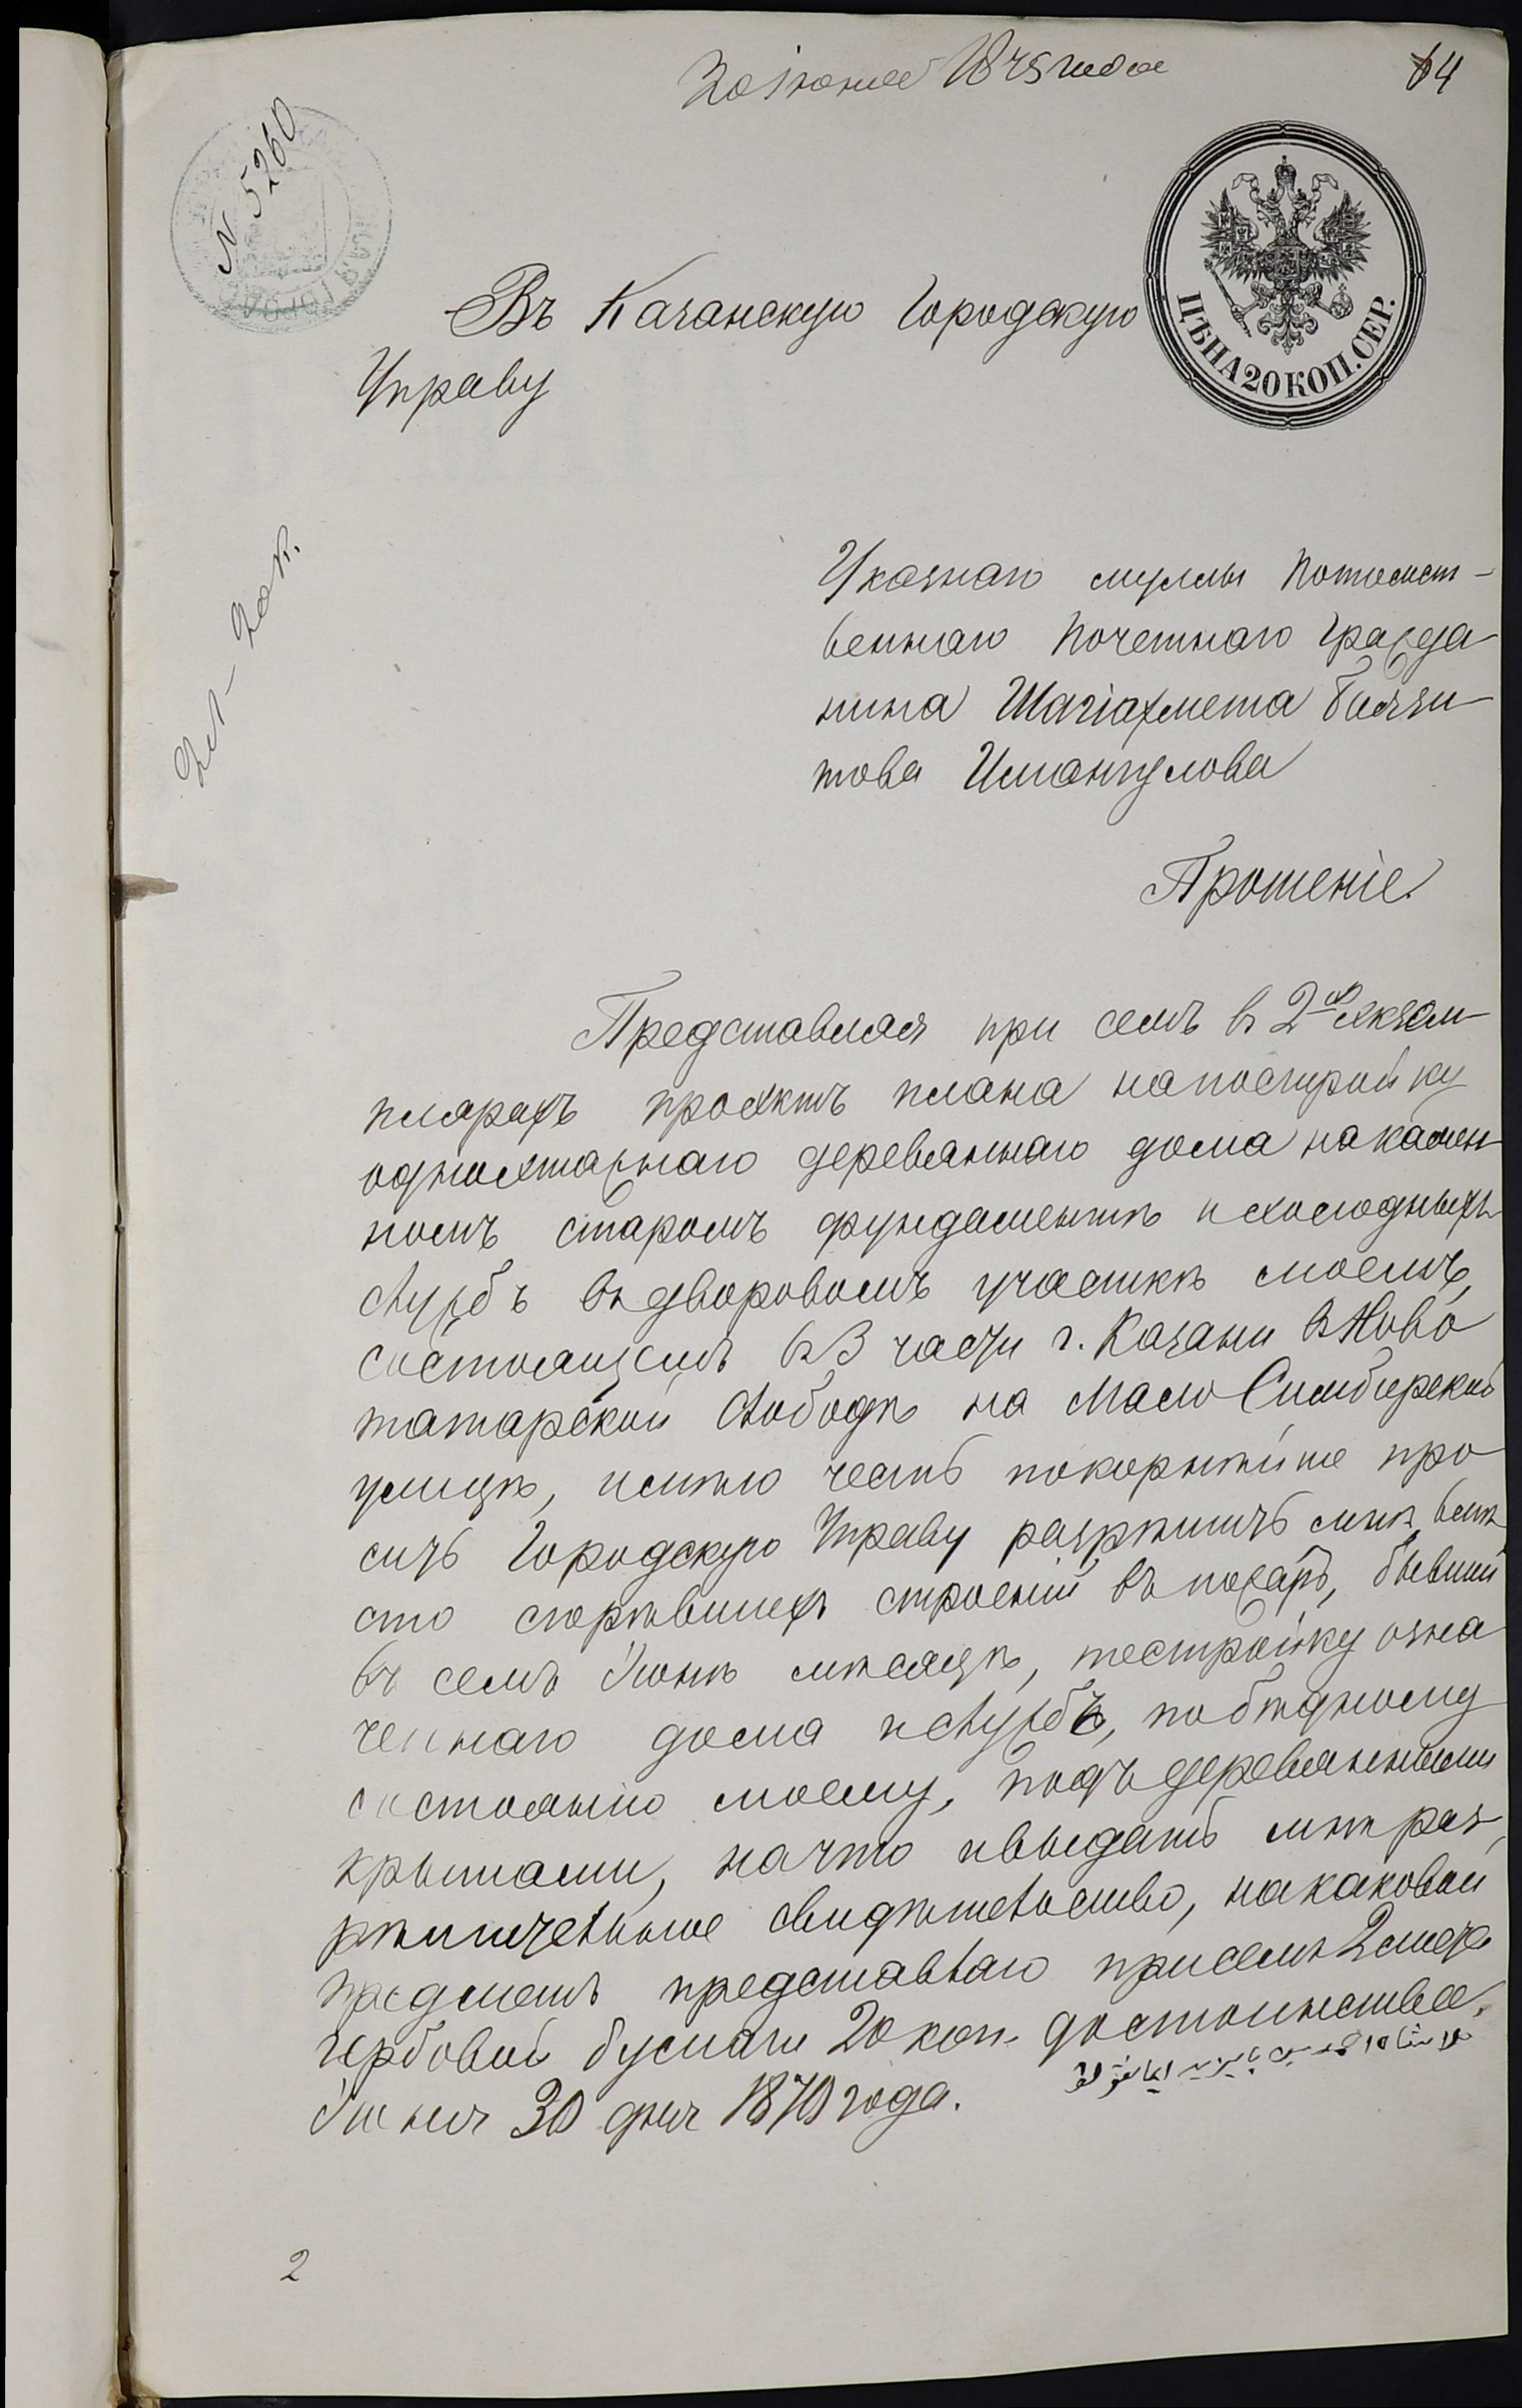 1875 года
64
N. 5260
ЦѢНА 20 КОП. СЕР.
Въ Казанскую Городскую
Управу
2 л - 20 к.
Указнаго муллы Потомст-
веннаго Почетнаго Гражда
нина Шагіахмета Баязи-
това Иманкулова
Прошеніе.
Представляя при семъ въ 2хъ экзем-
плярахъ проэктъ плана на постройку
одноэтажнаго деревяннаго дома на камен
номъ старомъ фундаментѣ и холодныхъ
службъ въ дворовомъ участкѣ моемъ,
состоящемъ въ 3 части г. Казани въ Ново
татарской слободѣ на Мало Симбирской
улицѣ, имѣю честь покорнѣйше про
сить Городскую Управу разрѣшить мнѣ, вмѣ
сто сгорѣвшихъ строеній въ пожаръ, бывшій
въ семъ Іюнѣ мѣсяцѣ, постройку озна
ченнаго дома и службъ, по бѣдному
состоянію моему, подъ деревянными
крышами, на что и выдать мнѣ раз
рѣшительное свидѣтельство, на каковой
предметъ представляю при семъ 2 листа
гербовой бумаги 20 коп. достоинства.
Іюня 30 дня 1875 года.
2